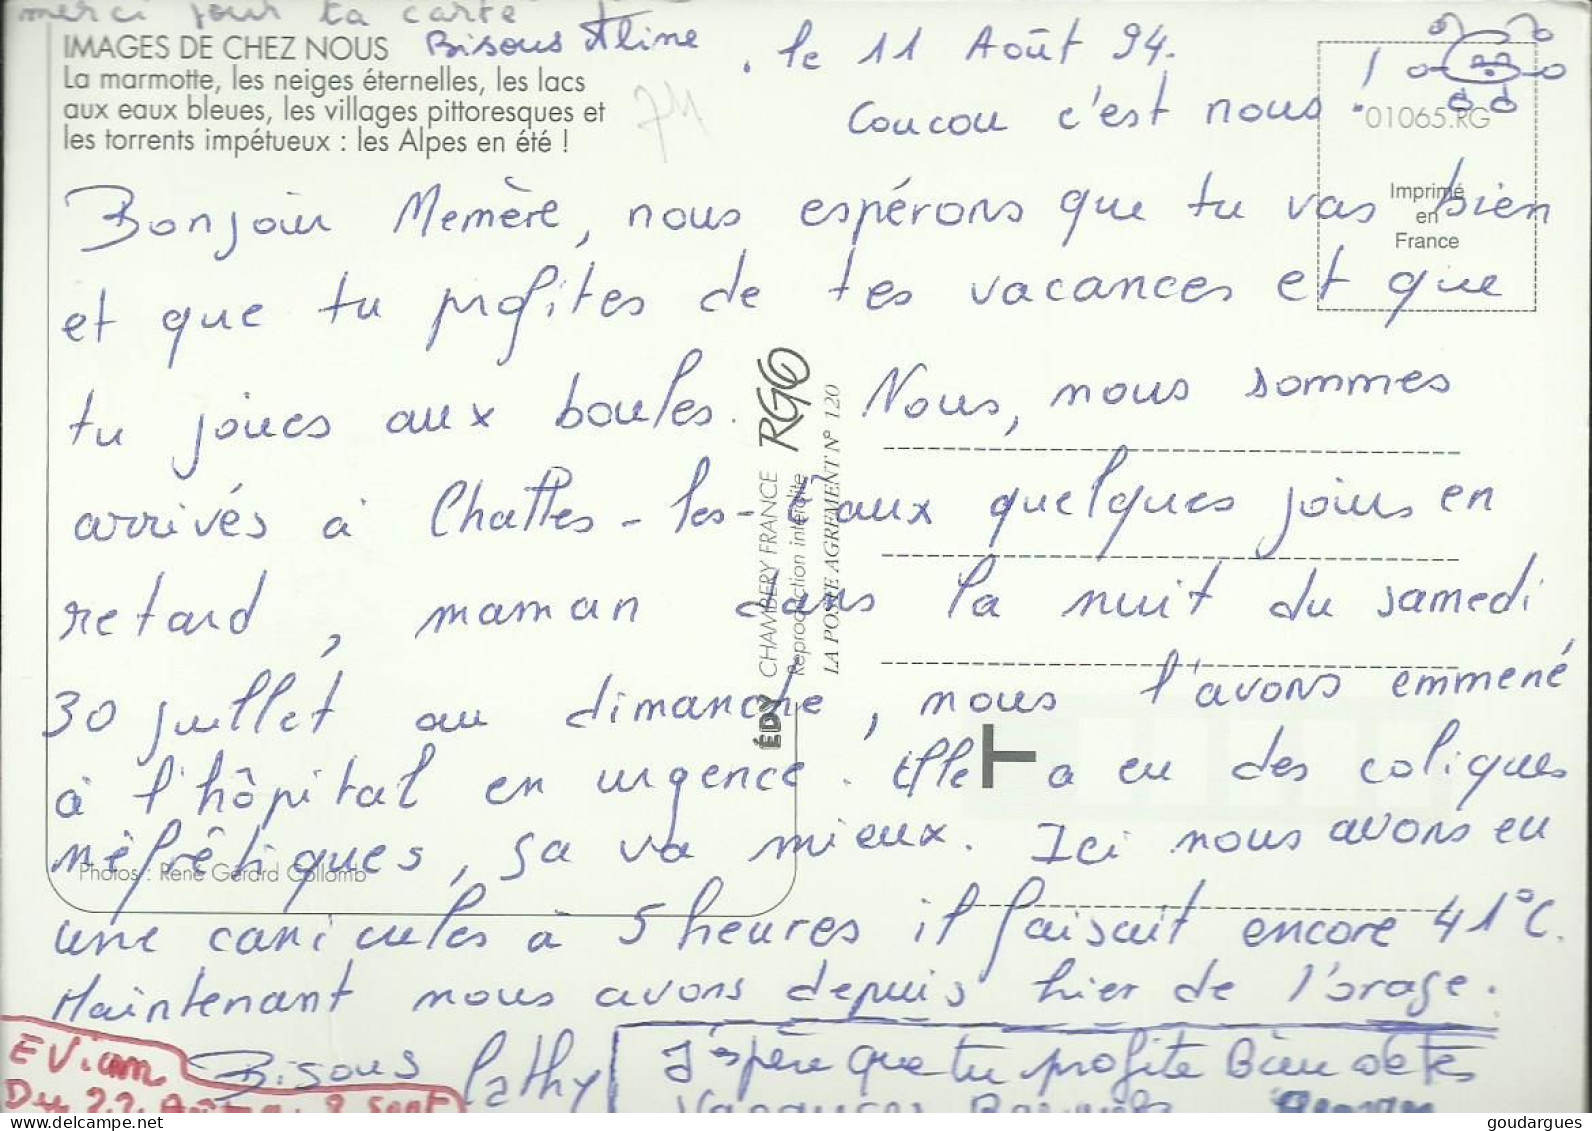 merci pour ta carte
IMAGES DE CHEZ NOUS
La marmotte, les neiges éternelles, les lacs
aux eaux bleues, les villages pittoresques et
les torrents impétueux : les Alpes en été !
Bisous Aline
, le 11 Août 94.
Coucou c'est nous !
74
01065.RG
Imprimé
en
France
Bonjour Memère, nous espérons que tu vas bien
et que tu profites de tes vacances et que
tu joues aux boules. Nous, nous sommes
arrivés à Challes-les-Eaux quelques jours en
retard, maman dans la nuit du samedi
30 juillet au dimanche, nous l'avons emmené
à l'hôpital en urgence. Elle a eu des coliques
néfrêtiques, sa va mieux. Ici nous avons eu
une canicules à 5 heures il faisait encore 41°C.
Maintenant nous avons depuis hier de l'orage.
Bisous Cathy
J'espère que tu profite Bien de tes
Vacances
EVian
Du 22 Août au 2 Sept
ÉDY CHAMBERY FRANCE RGC
Reproduction interdite
LA POSTE AGREMENT N° 120
T
Photos : René Gérard Collomb
goudargues